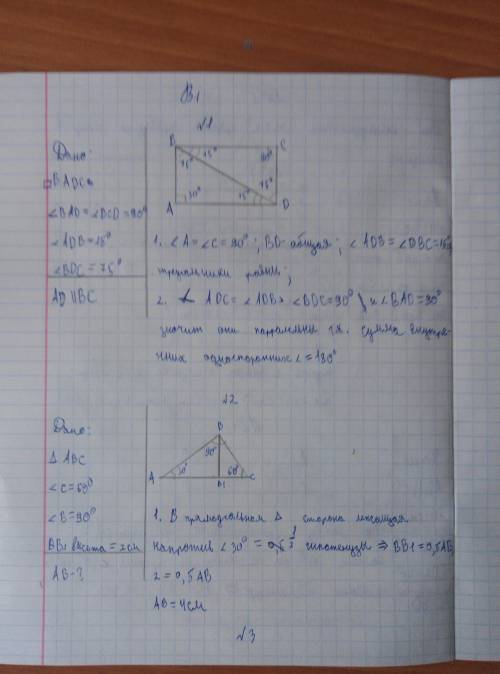 В1
√1
Дано:
BADC
∠BAD=∠BCD=90°
∠ADB=15°
∠BDC=75°
AD||BC
B
C
A
D
75°
15°
90°
90°
75°
15°
1. ∠A=∠C=90°; BD-общая; ∠ADB=∠DBC=15°
треугольники равны;
2. ∠ADC=∠ADB+∠BDC=90° и ∠BAD=90°
значит они парралельны т.к. сумма внутре-
нних односторонних ∠=180°
√2
Дано:
Δ ABC
∠C=60°
∠B=90°
BB1 высота=2см
AB-?
B
A
B1
C
90°
30°
60°
1. В прямоугольном Δ сторона лежащая
напротив ∠30°= 1/2 гипотенузы ⇒ BB1=0,5AB
2=0,5AB
AB=4см
√3